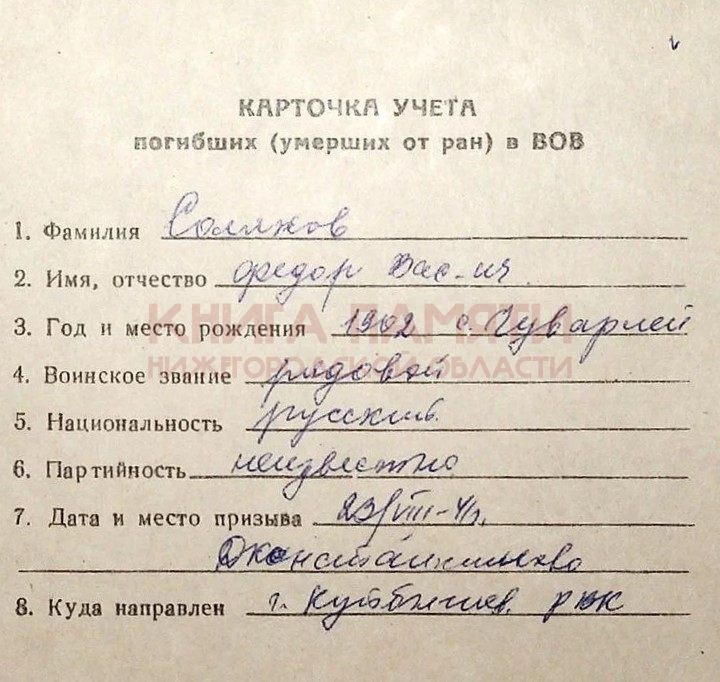 КАРТОЧКА УЧЕТА
погибших (умерших от ран) в ВОВ
1. Фамилия Соляков
2. Имя, отчество Федор Вас-ич
КНИГА ПАМЯТИ
3. Год и место рождения 1902 с. Чуварлей
НИЖЕГОРОДСКОЙ ОБЛАСТИ
4. Воинское звание рядовой
5. Национальность русский
6. Партийность неизвестно
7. Дата и место призыва 23/VIII-41г.
Дконстантиново
8. Куда направлен г. Куйбышев. РВК